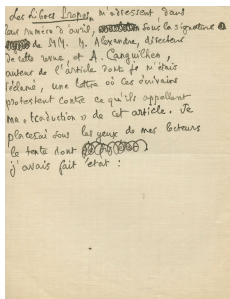 Les Libres Propos m'adressent dans
leur numéro d'avril, sous la signature
de MM. M. Alexandre, directeur
de cette revue, et A. Canguilhem,
auteur de l'article dont je m'étais
réclamé, une lettre où ces écrivains
protestent contre ce qu'ils appellent
ma « traduction » de cet article. Je
placerai sous les yeux de mes lecteurs
le texte dont
j'avais fait état :